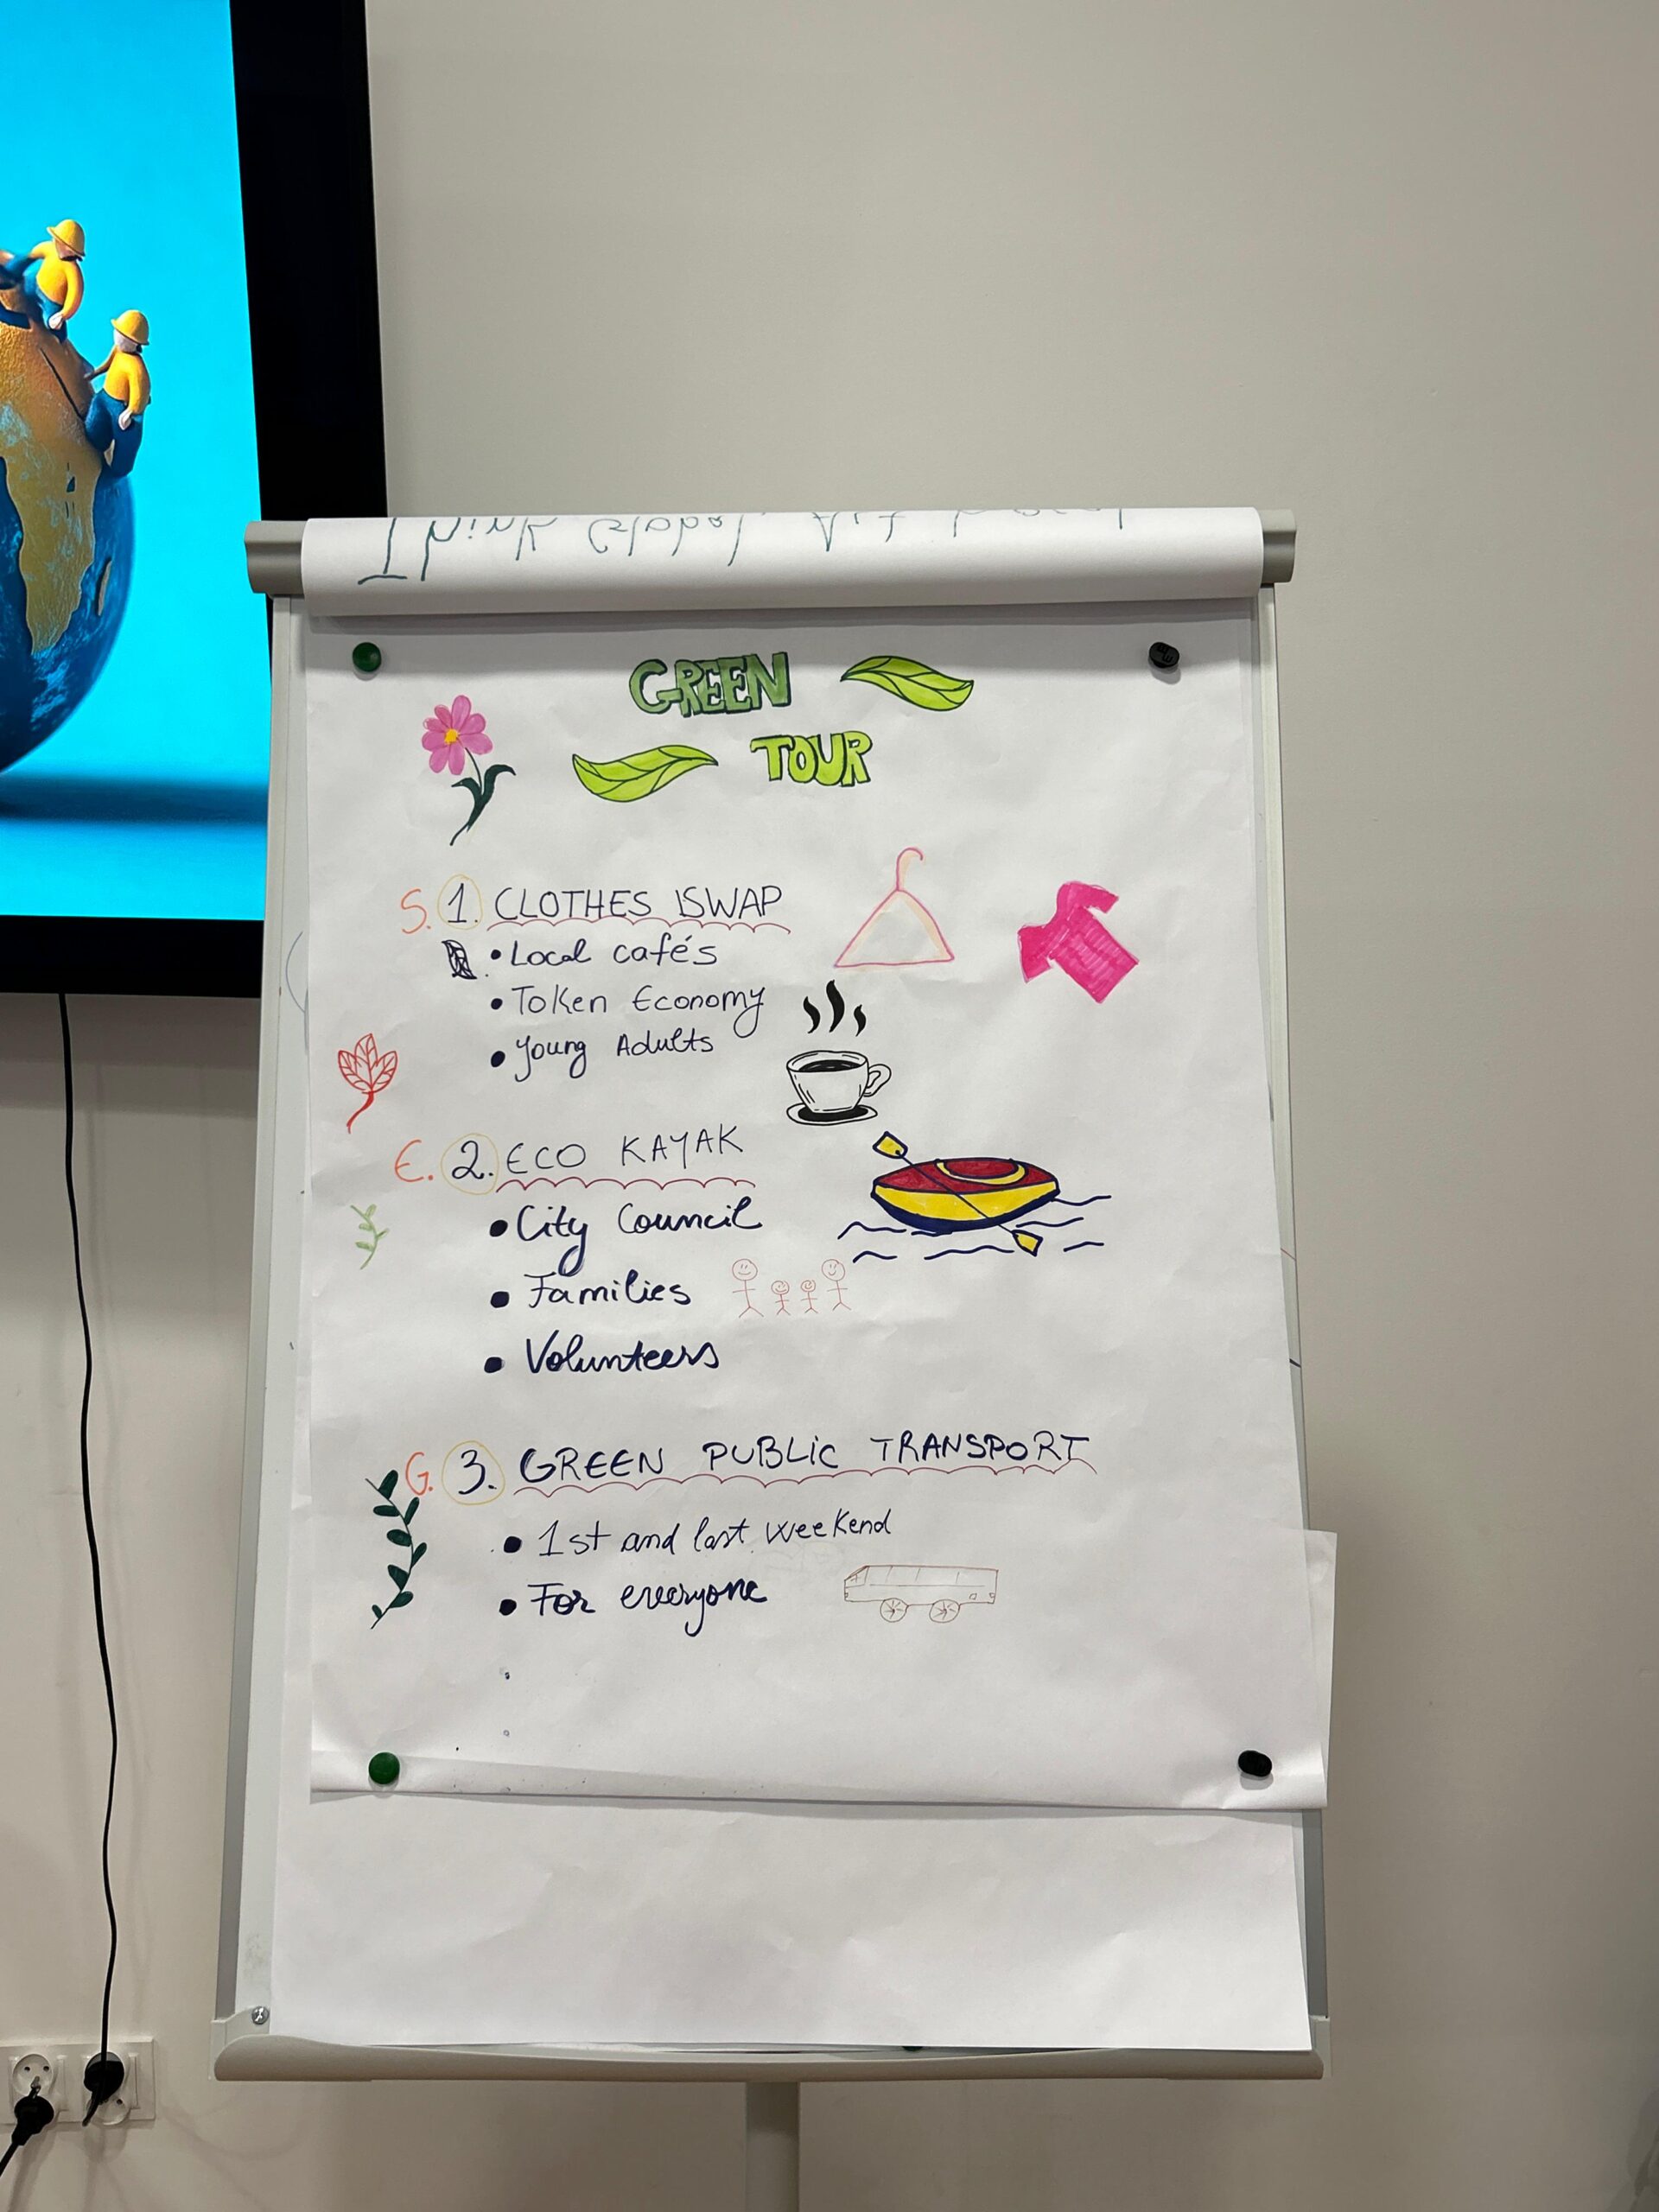 Think Global, Act Local
GREEN
TOUR
S. 1. CLOTHES SWAP
• Local cafés
• Token Economy
• Young Adults
E. 2. ECO KAYAK
• City Council
• Families
• Volunteers
G. 3. GREEN PUBLIC TRANSPORT
• 1st and last weekend
• For everyone